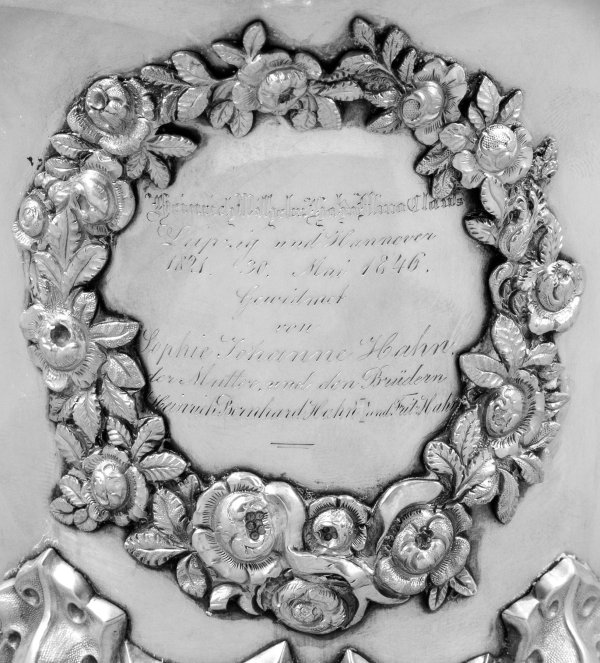 Heinrich Wilhelm Hahn Clara Claus
Leipzig und Hannover
1821. 30. Mai 1846.
Gewidmet
von
Sophie Johanne Hahn
der Mutter, und den Brüdern
Heinrich Bernhard Hahn und Fritz Hahn